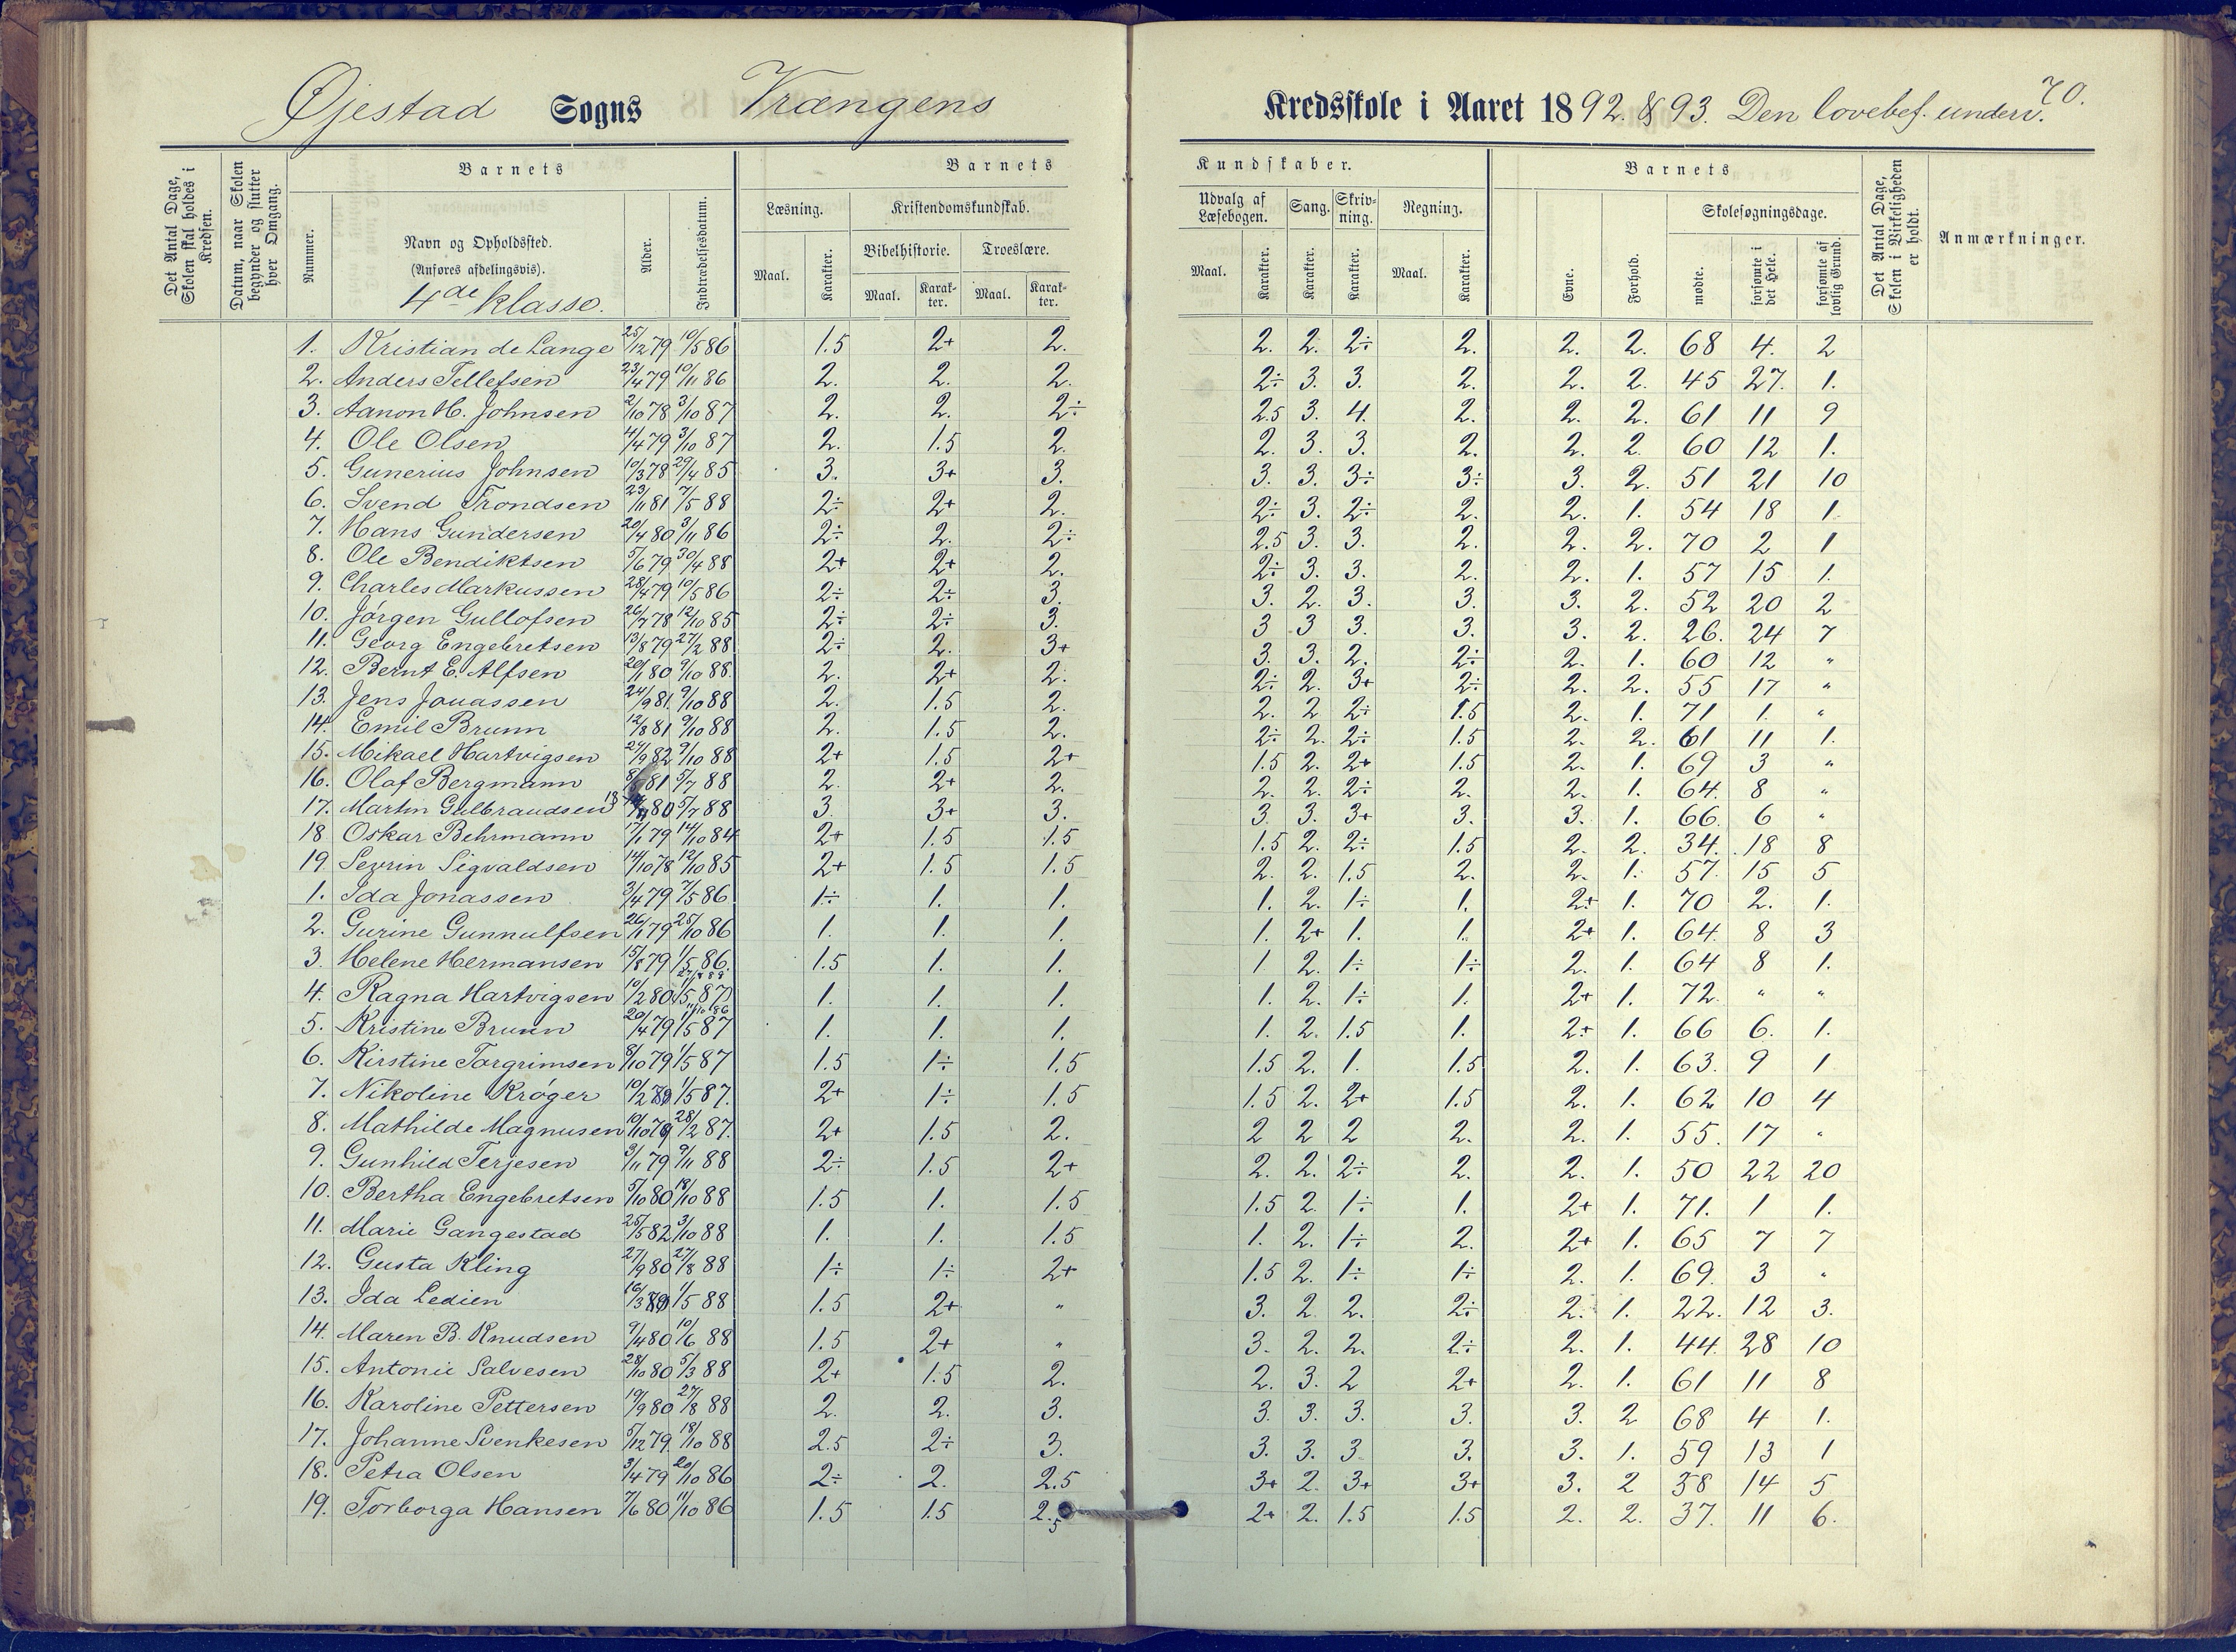 70.
Øjestad Sogns Vrængens Kredsskole i Aaret 1892 & 93. Den lovebef. underv.
Det Antal Dage, Skolen skal holdes i Kredsen.
Datum, naar Skolen begynder og slutter hver Omgang.
Barnets
Nummer.
Navn og Opholdssted.
(Anføres afdelingsvis).
4de klasse.
Alder.
Indtrædelsesdatum.
Barnets Kundskaber.
Læsning. Kristendomskundskab. Udvalg af Læsebogen. Sang. Skrivning. Regning.
Bibelhistorie. Troeslære.
Maal. Karakter. Maal. Karakter. Maal. Karakter. Maal. Karakter. Karakter. Karakter. Maal. Karakter.
Barnets
Evne. Forhold. Skolesøgningsdage.
mødte. forsømte i det Hele. forsømte af lovlig Grund.
Det Antal Dage, Skolen i Virkeligheden er holdt.
Anmærkninger.
1. Kristian de Lange 25/12 79 10/5 86 1.5 2+ 2. 2. 2. 2÷ 2. 2. 2. 68 4. 2
2. Anders Tellefsen 23/4 79 10/11 86 2. 2. 2. 2÷ 3. 3. 2. 2. 2. 45 27. 1.
3. Aanon H. Johnsen 2/10 78 3/10 87 2. 2. 2÷ 2.5 3. 4. 2. 2. 2. 61 11 9
4. Ole Olsen 4/4 79 3/10 87 2. 1.5 2. 2. 3. 3. 2. 2. 2. 60 12 1.
5. Gunerius Johnsen 10/3 78 29/4 85 3. 3+ 3. 3. 3. 3÷ 3÷ 3. 2. 51 21 10
6. Svend Trondsen 23/11 81 7/5 88 2÷ 2+ 2. 2÷ 3. 2÷ 2. 2. 1. 54 18 1.
7. Hans Gundersen 20/4 80 3/11 86 2÷ 2. 2÷ 2.5 3. 3. 2. 2. 2. 70 2 1
8. Ole Bendiktsen 5/6 79 30/4 88 2+ 2+ 2. 2÷ 3. 3. 2. 2. 1. 57 15 1.
9. Charles Markussen 28/4 79 10/5 86 2÷ 2÷ 3. 3. 2. 3. 3. 3. 2. 52 20 2
10. Jørgen Gullofsen 26/7 78 12/10 85 2÷ 2÷ 3. 3 3 3. 3. 3. 2. 26. 24 7
11. Georg Engebretsen 13/8 79 27/2 88 2÷ 2. 3+ 3. 3. 2. 2÷ 2. 1. 60 12 "
12. Bernt E. Alfsen 20/1 80 9/10 88. 2. 2+ 2. 2÷ 2. 3+ 2÷ 2. 2. 55 17 "
13. Jens Jonassen 24/9 81. 9/10 88 2. 1.5 2. 2. 2 2÷ 1.5 2. 1. 71 1. "
14. Emil Brunn 12/8 81 9/10 88 2. 1.5 2. 2÷ 2. 2÷ 1.5 2. 2. 61 11 1.
15. Mikael Hartvigsen 24/9 82 9/10 88 2+ 1.5 2+ 1.5 2. 2+ 1.5 2. 1. 69 3 "
16. Olaf Bergmann 81 5/7 88 2. 2+ 2. 2. 2. 2÷ 2. 2. 1. 64. 8 "
17. Martin Gulbrandsen 80 5/7 88 3. 3+ 3. 3. 3. 3+ 3. 3. 1. 66. 6 "
18 Oskar Behrmann 17/1 79 14/10 84 2+ 1.5 1.5 1.5 2. 2÷ 1.5 2. 2. 34. 18 8
19. Sevrin Sigvaldsen 14/10 78 12/10 85 2+ 1.5 1.5 2. 2. 1.5 2. 2. 1. 57. 15 5
1. Ida Jonassen 3/4 79 7/5 86 1÷ 1. 1. 1. 2. 1÷ 1. 2+ 1. 70 2. 1.
2. Gurine Gunnulfsen 26/1 79 25/10 86 1. 1. 1. 1. 2+ 1. 1. 2+ 1. 64. 8 3
3. Helene Hermansen 15/8 79 1/5 86. 1.5 1. 1. 1 2. 1÷ 1÷ 2. 1. 64 8 1.
4. Ragna Hartvigsen 10/2 80 1/5 87 1. 1. 1. 1. 2. 1÷ 1. 2+ 1. 72. " "
5. Kristine Brunn 20/4 79 1/5 87 1. 1. 1. 1. 2. 1.5 1. 2+ 1. 66 6. 1.
6. Kirstine Targrimsen 8/10 79 1/5 87 1.5 1÷ 1.5 1.5 2. 1. 1.5 2. 1. 63. 9 1
7. Nikoline Krøger 10/2 80 1/5 87. 2+ 1÷ 1.5 1.5 2. 2+ 1.5 2. 1. 62 10 4
8. Mathilde Magnusen 10/10 79 28/2 87. 2+ 1.5 2. 2 2 2 2. 2. 1. 55. 17 "
9. Gunhild Terjesen 3/11 79 9/11 88 2÷ 1.5 2+ 2. 2. 2÷ 2. 2. 1. 50 22 20
10. Bertha Engebretsen 5/10 80 18/10 88 1.5 1. 1.5 1.5 2. 1÷ 1. 2+ 1. 71. 1 1.
11. Marie Gangestad 25/5 82 3/10 88 1. 1. 1.5 1. 2. 1÷ 2. 2+ 1. 65 7 7
12. Gusta Kling 27/9 80 27/8 88 1÷ 1÷ 2+ 1.5 2. 1÷ 1÷ 2. 1. 69. 3 "
13. Ida Ledien 16/3 80 1/5 88 1.5 2+ " 3. 2. 2. 2÷ 2. 1. 22. 12 3.
14. Maren B. Knudsen 9/4 80 10/6 88 1.5 2+ " 3. 2. 2. 2÷ 2. 1. 44. 28 10
15. Antonie Salvesen 28/10 80 5/3 88 2+ 1.5 2. 2. 3. 2 2+ 2. 1. 61 11 8
16. Karoline Pettersen 19/9 80 27/8 88 2. 2. 3. 3. 3. 3. 3. 3. 2 68 4 1.
17. Johanne Svenkesen 5/12 79. 18/10 88 2.5 2÷ 3. 3. 3. 3 3. 3. 1. 59 13 1
18. Petra Olsen 3/4 79 20/10 86 2÷ 2. 2.5 3+ 2. 3+ 3+ 3. 2 58 14 5
19. Torborga Hansen 7/6 80 11/10 86 1.5 1.5 2.5 2+ 2. 1.5 1.5 2. 2. 37. 11 6.